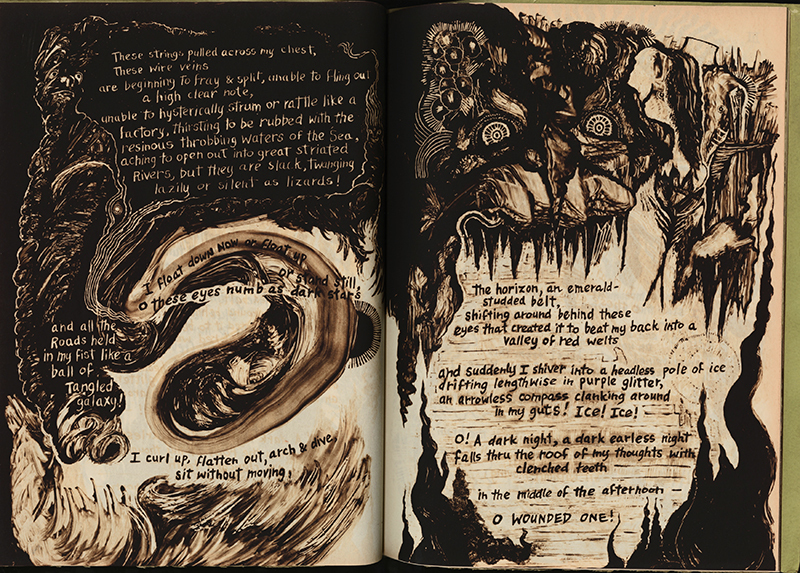 These strings pulled across my chest,
These wire veins
are beginning to fray & split, unable to fling out
a high clear note,
unable to hysterically strum or rattle like a
factory, thirsting to be rubbed with the
resinous throbbing waters of the Sea,
aching to open out into great striated
Rivers, but they are slack, twanging
lazily or silent as lizards!
I float down now or float up
or stand still,
O these eyes numb as dark stars
and all the
Roads held
in my fist like a
ball of
Tangled
galaxy!
I curl up, flatten out, arch & dive,
sit without moving,
the horizon, an emerald-
studded belt,
shifting around behind these
eyes that created it to beat my back into a
valley of red welts
and suddenly I shiver into a headless pole of ice
drifting lengthwise in purple glitter,
an arrowless compass clanking around
in my guts! Ice! Ice! —
O! A dark night, a dark earless night
falls thru the roof of my thoughts with
clenched teeth
in the middle of the afternoon —
O WOUNDED ONE!